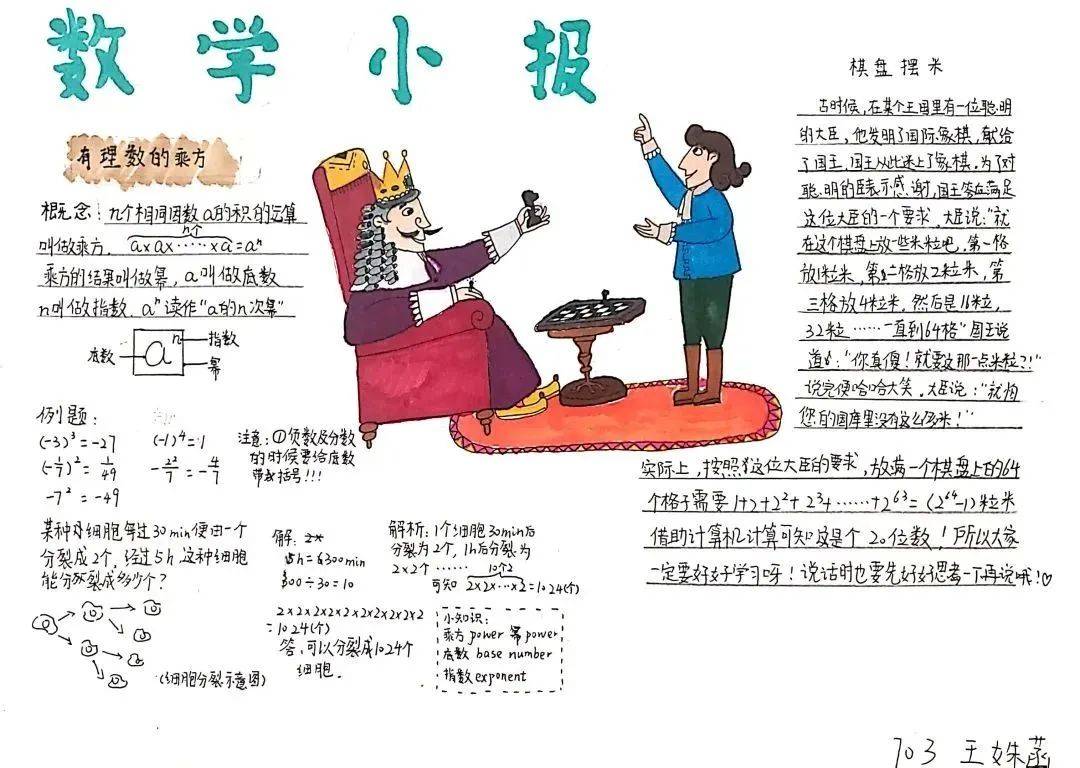 数学小报
有理数的乘方
概念：n个相同因数a的积的运算
叫做乘方. a×a×……×a=aⁿ
n个
乘方的结果叫做幂，a叫做底数
n叫做指数. aⁿ读作“a的n次幂”
底数 aⁿ 指数
幂
例题：
(-3)³=-27 (-1)⁴=1
(-1/7)²=1/49 -2²/7=-4/7
-7²=-49
注意：①负数及分数
的时候要给底数
带括号!!!
某种细胞每过30min便由一个
分裂成2个，经过5h，这种细胞
能分裂成多少个？
(细胞分裂示意图)
解：
5h=300min
300÷30=10
2×2×2×2×2×2×2×2×2×2
=1024(个)
答，可以分裂成1024个
细胞.
解析：1个细胞30min后
分裂为2个，1h后分裂为
2×2个……
10个2
可知 2×2×…×2=1024(个)
小知识：
乘方 power 幂 power
底数 base number
指数 exponent
棋盘摆米
古时候，在某个王国里有一位聪明
的大臣，他发明了国际象棋，献给
了国王，国王从此迷上了象棋。为了对
聪明的臣表示感谢，国王答应满足
这位大臣的一个要求。大臣说：“就
在这个棋盘上放一些米粒吧，第一格
放1粒米，第二格放2粒米，第
三格放4粒米，然后是16粒，
32粒……一直到64格”国王说
道：“你真傻！就要这那一点米粒？！”
说完便哈哈大笑。大臣说：“就怕
您的国库里没有这么多米！”
实际上，按照这位大臣的要求，放满一个棋盘上的64
个格子需要1+2+2²+2³+……+2⁶³=(2⁶⁴-1)粒米
借助计算机计算可知这是个20位数！所以大家
一定要好好学习呀！说话时也要先好好思考一下再说哦！♡
703 王姝菡